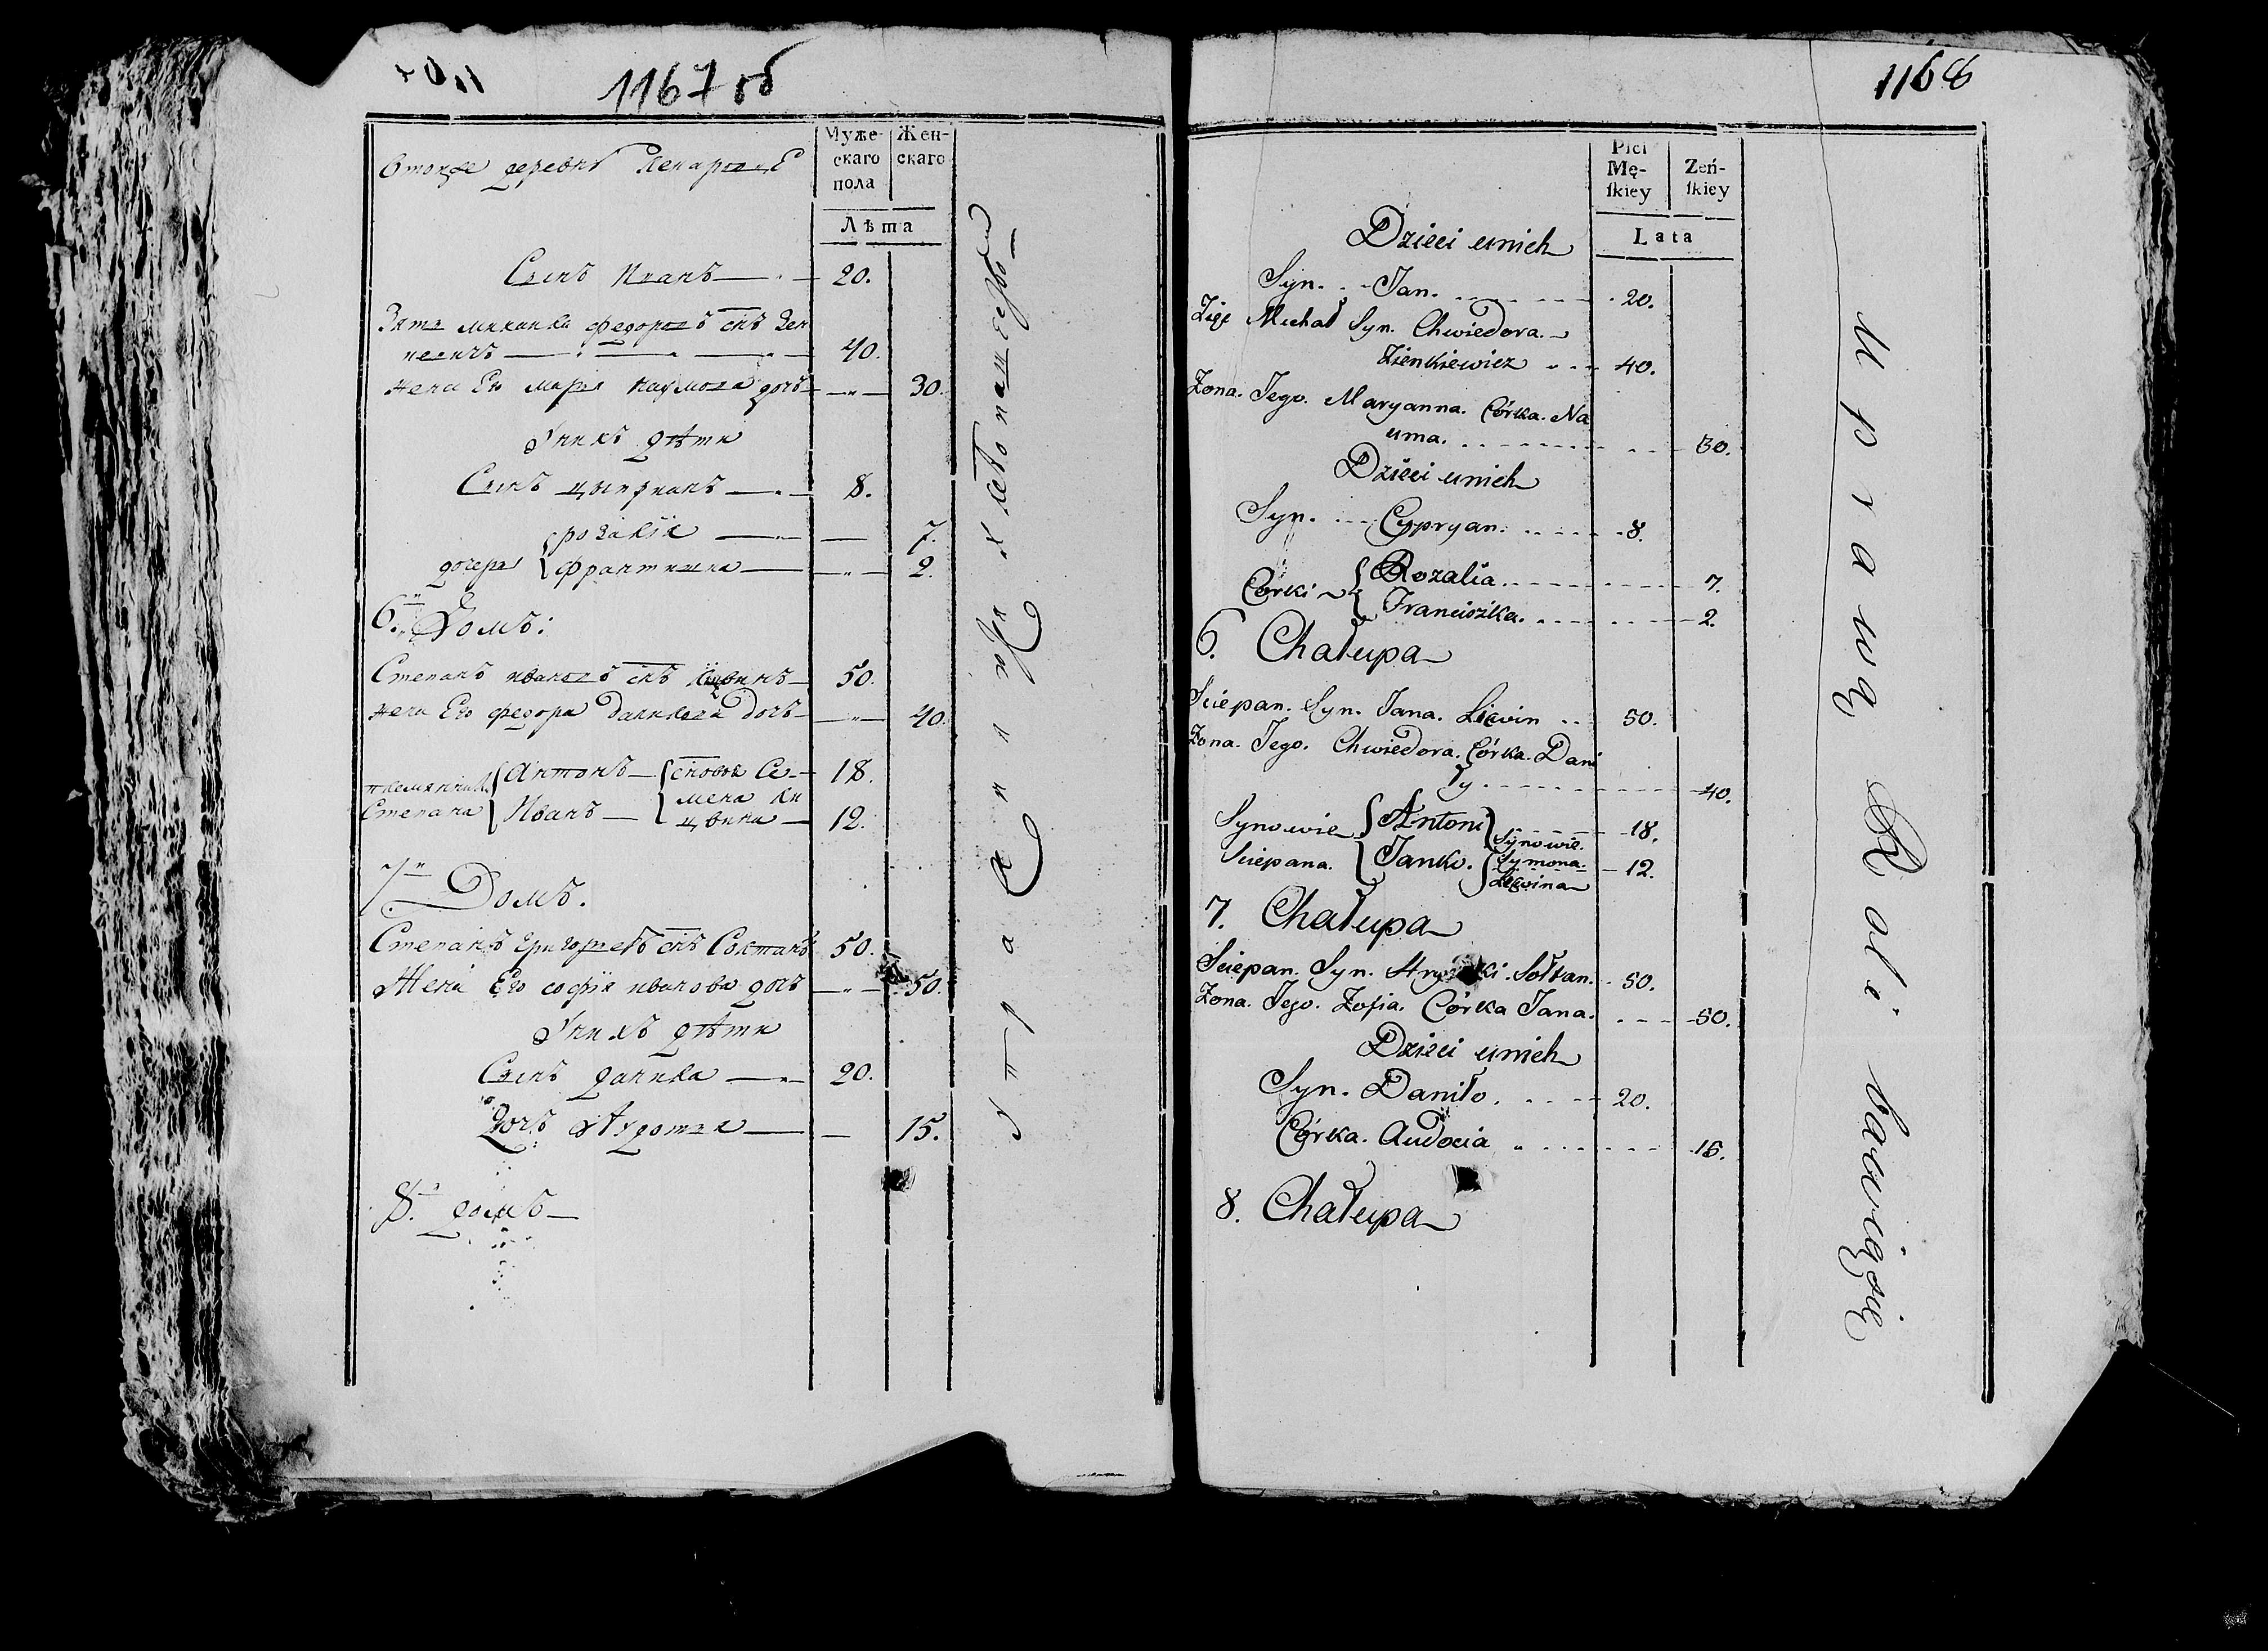 1167 об
Муже-
скаго
пола
Жен-
скаго
Лѣта
Втойже деревнѣ
Сынъ Иванъ 20.
Зять михаила федоровъ снъ Зен
кевичъ 40.
жена Его марья наумова дочь 30.
Унихъ дѣти
Сынъ цыприанъ 8.
дочери { розалiя 7.
францишка 2.
6. Домъ:
Степанъ ивановъ снъ 50.
жена Его федора данилова дочь 40.
племянники { Антонъ { сновья Се- 18.
Степана { Иванъ { мена 12.
7. Домъ.
Степанъ григорьевъ снъ Солтанъ 50.
Жена Его софiя иванова дочь 50.
Унихъ дѣти
Сынъ данила 20.
Дочь Аудотья 15.
8. домъ
1168
Płci
Mę-
ſkiey
Żeń-
ſkiey
Lata
Dzieci unich
Syn. Jan. 20.
Zięć Michał Syn. Chwiedora.
Zienkiewicz 40.
Zona. Jego. Maryanna. Córka. Na
uma. 30.
Dzieci unich
Syn. Cypryan. 8.
Corki { Rozalia. 7.
Franciszka. 2.
6. Chałupa
Sciepan. Syn. Jana. Licwin 50.
Zona. Jego. Chwiedora. Córka. Dani
ły. 40.
Synowie { Antoni } Synowie. 18.
Sciepana. { Janko. { Symona. 12.
Licwina
7. Chałupa
Sciepan. Syn. Sołtan. 50.
Zona. Jego. Zofia. Córka Jana. 50.
Dzieci unich
Syn. Daniło. 20.
Córka. Audocia 15.
8. Chałupa
Uprawą Roli bawięsię